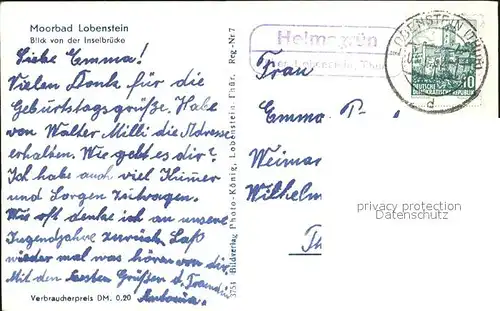 Moorbad Lobenstein
Blick von der Inselbrücke
Liebe Emma!
Vielen Dank für die
Geburtstagsgrüße. Habe
von Walter Milli die Adresse
erhalten. Wie geht es dir?
Ich habe auch viel Kummer
und Sorgen zutragen.
Wie oft denke ich an unsere
Jugendjahre zurück. Laß
wieder mal was hören von dir.
Mit den besten Grüßen d. Freundin
Antonia.
Verbraucherpreis DM. 0,20
3754 Bildverlag Photo-König, Lobenstein-Thür. Reg.-Nr 7
Helmsgrün
über Lobenstein, Thür
LOBENSTEIN (THÜR)
d
10
DEUTSCHE
DEMOKRATISCHE REPUBLIK
Frau
Emma
Weimar
Wilhelm
Th
privacy protection
for ANSICHTSKARTEN-LEXIKON